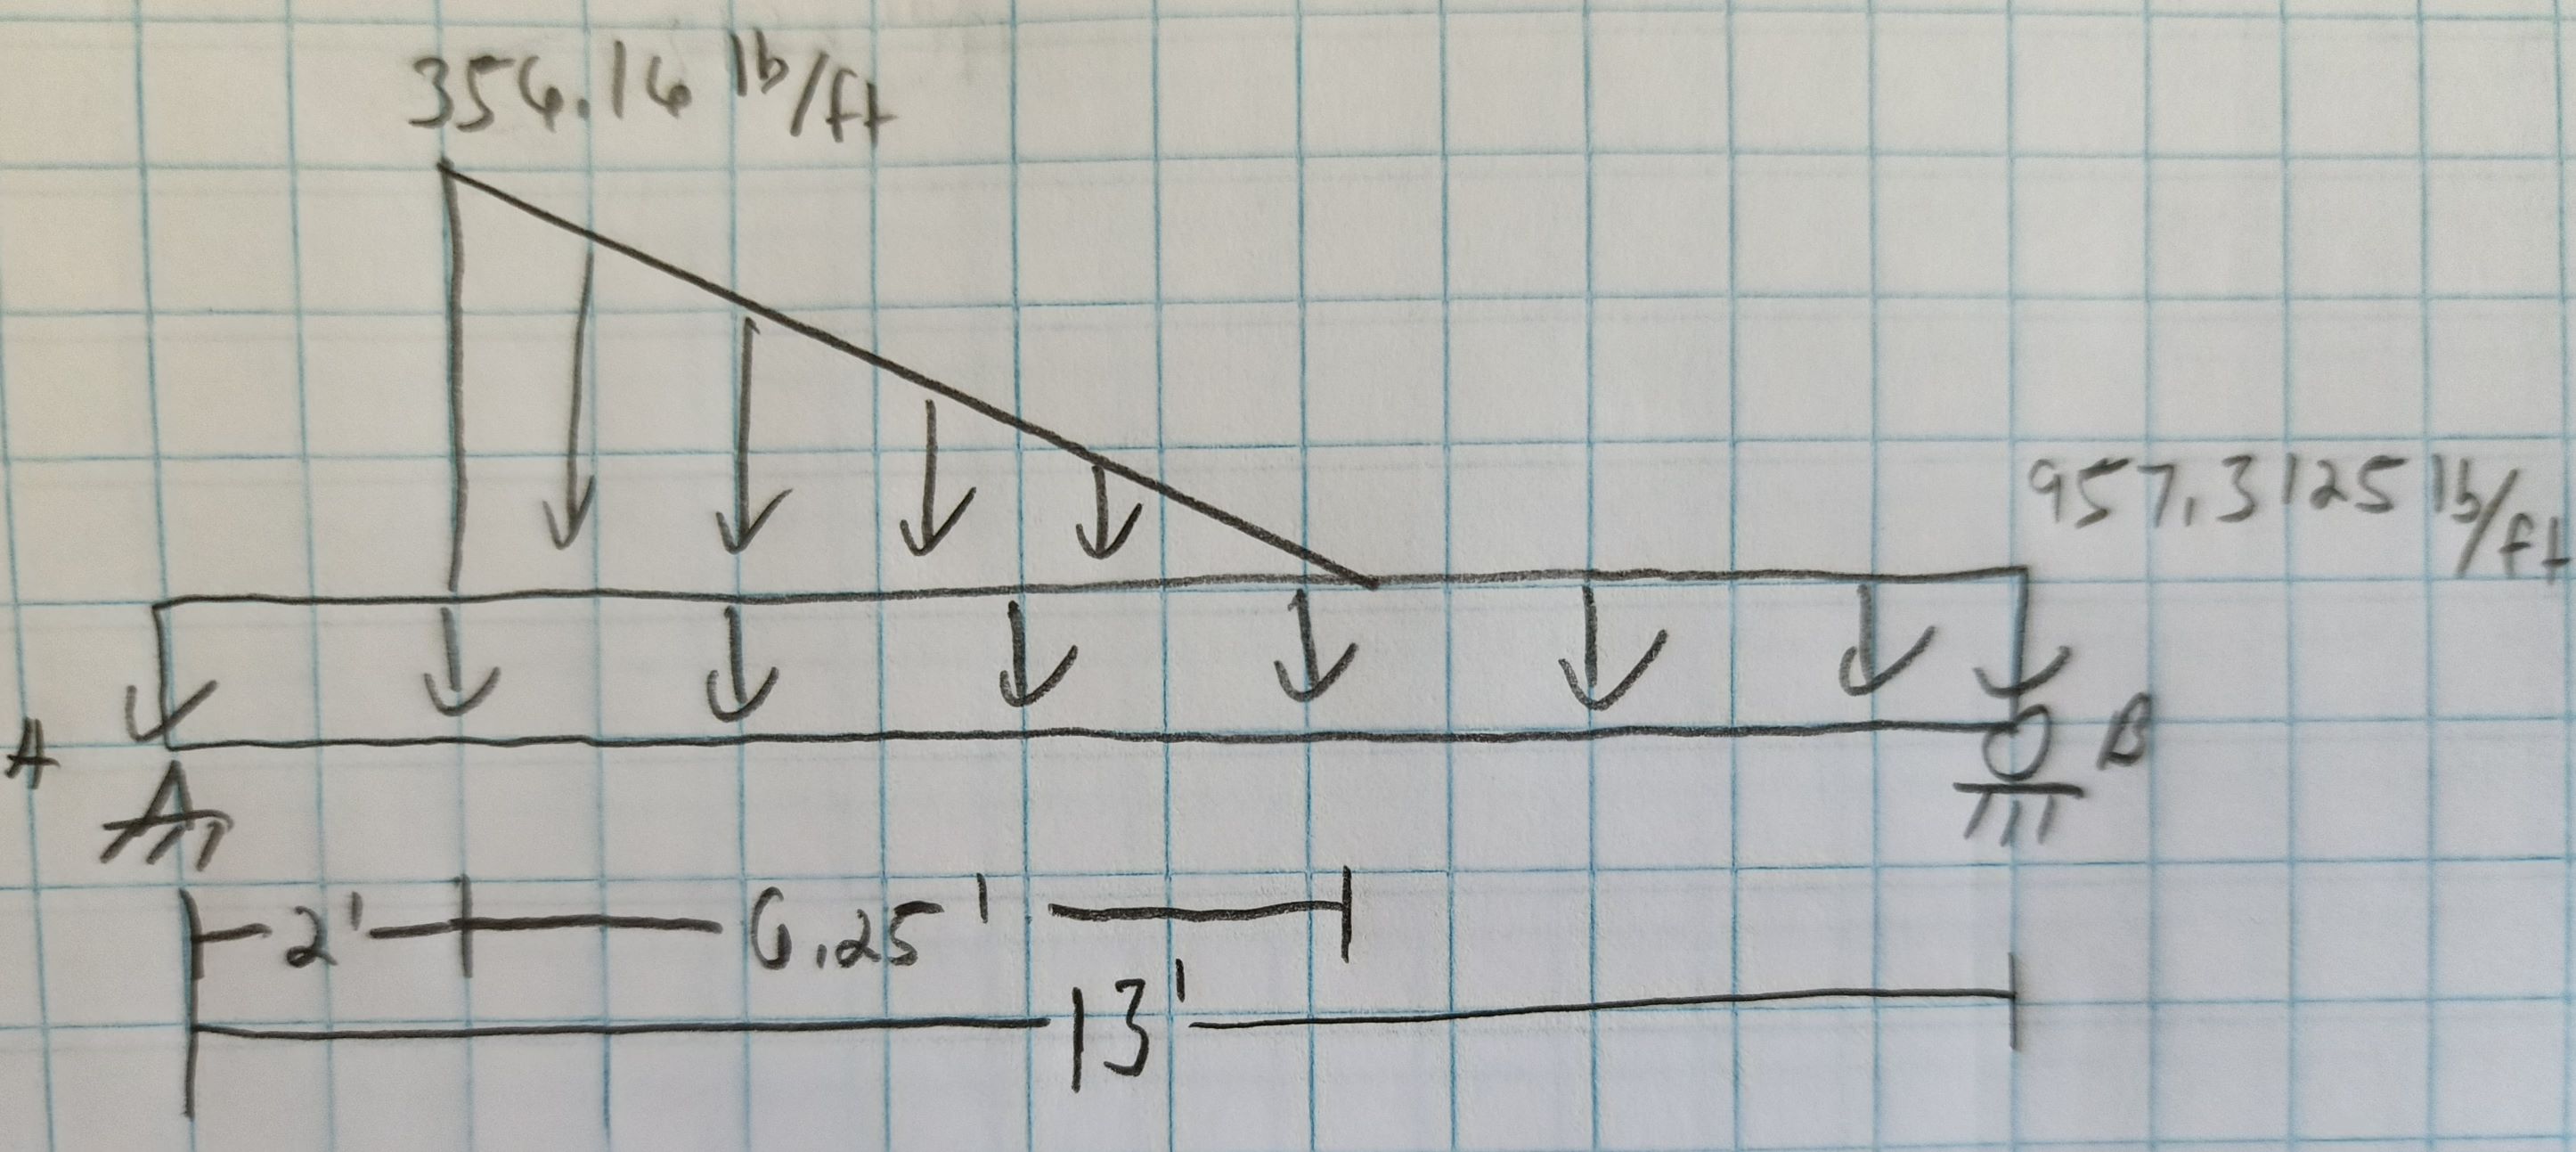 356.16 lb/ft
957.3125 lb/ft
A
B
2'
6.25'
13'